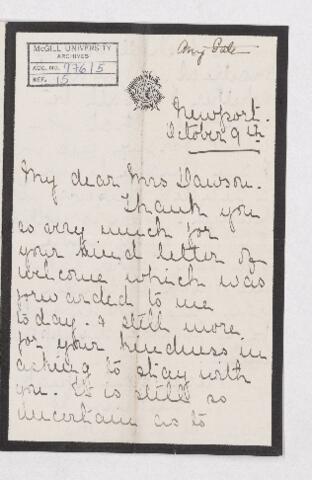 McGILL UNIVERSITY
ARCHIVES
ACC. NO. 976/5
REF. 15
Newport.
October 9th
My dear Mrs Dawson.
Thank you
so very much for
your kind letter of
welcome which was
forwarded to me
today. & still more
for your kindness in
asking to stay with
you. It is still so
uncertain as to